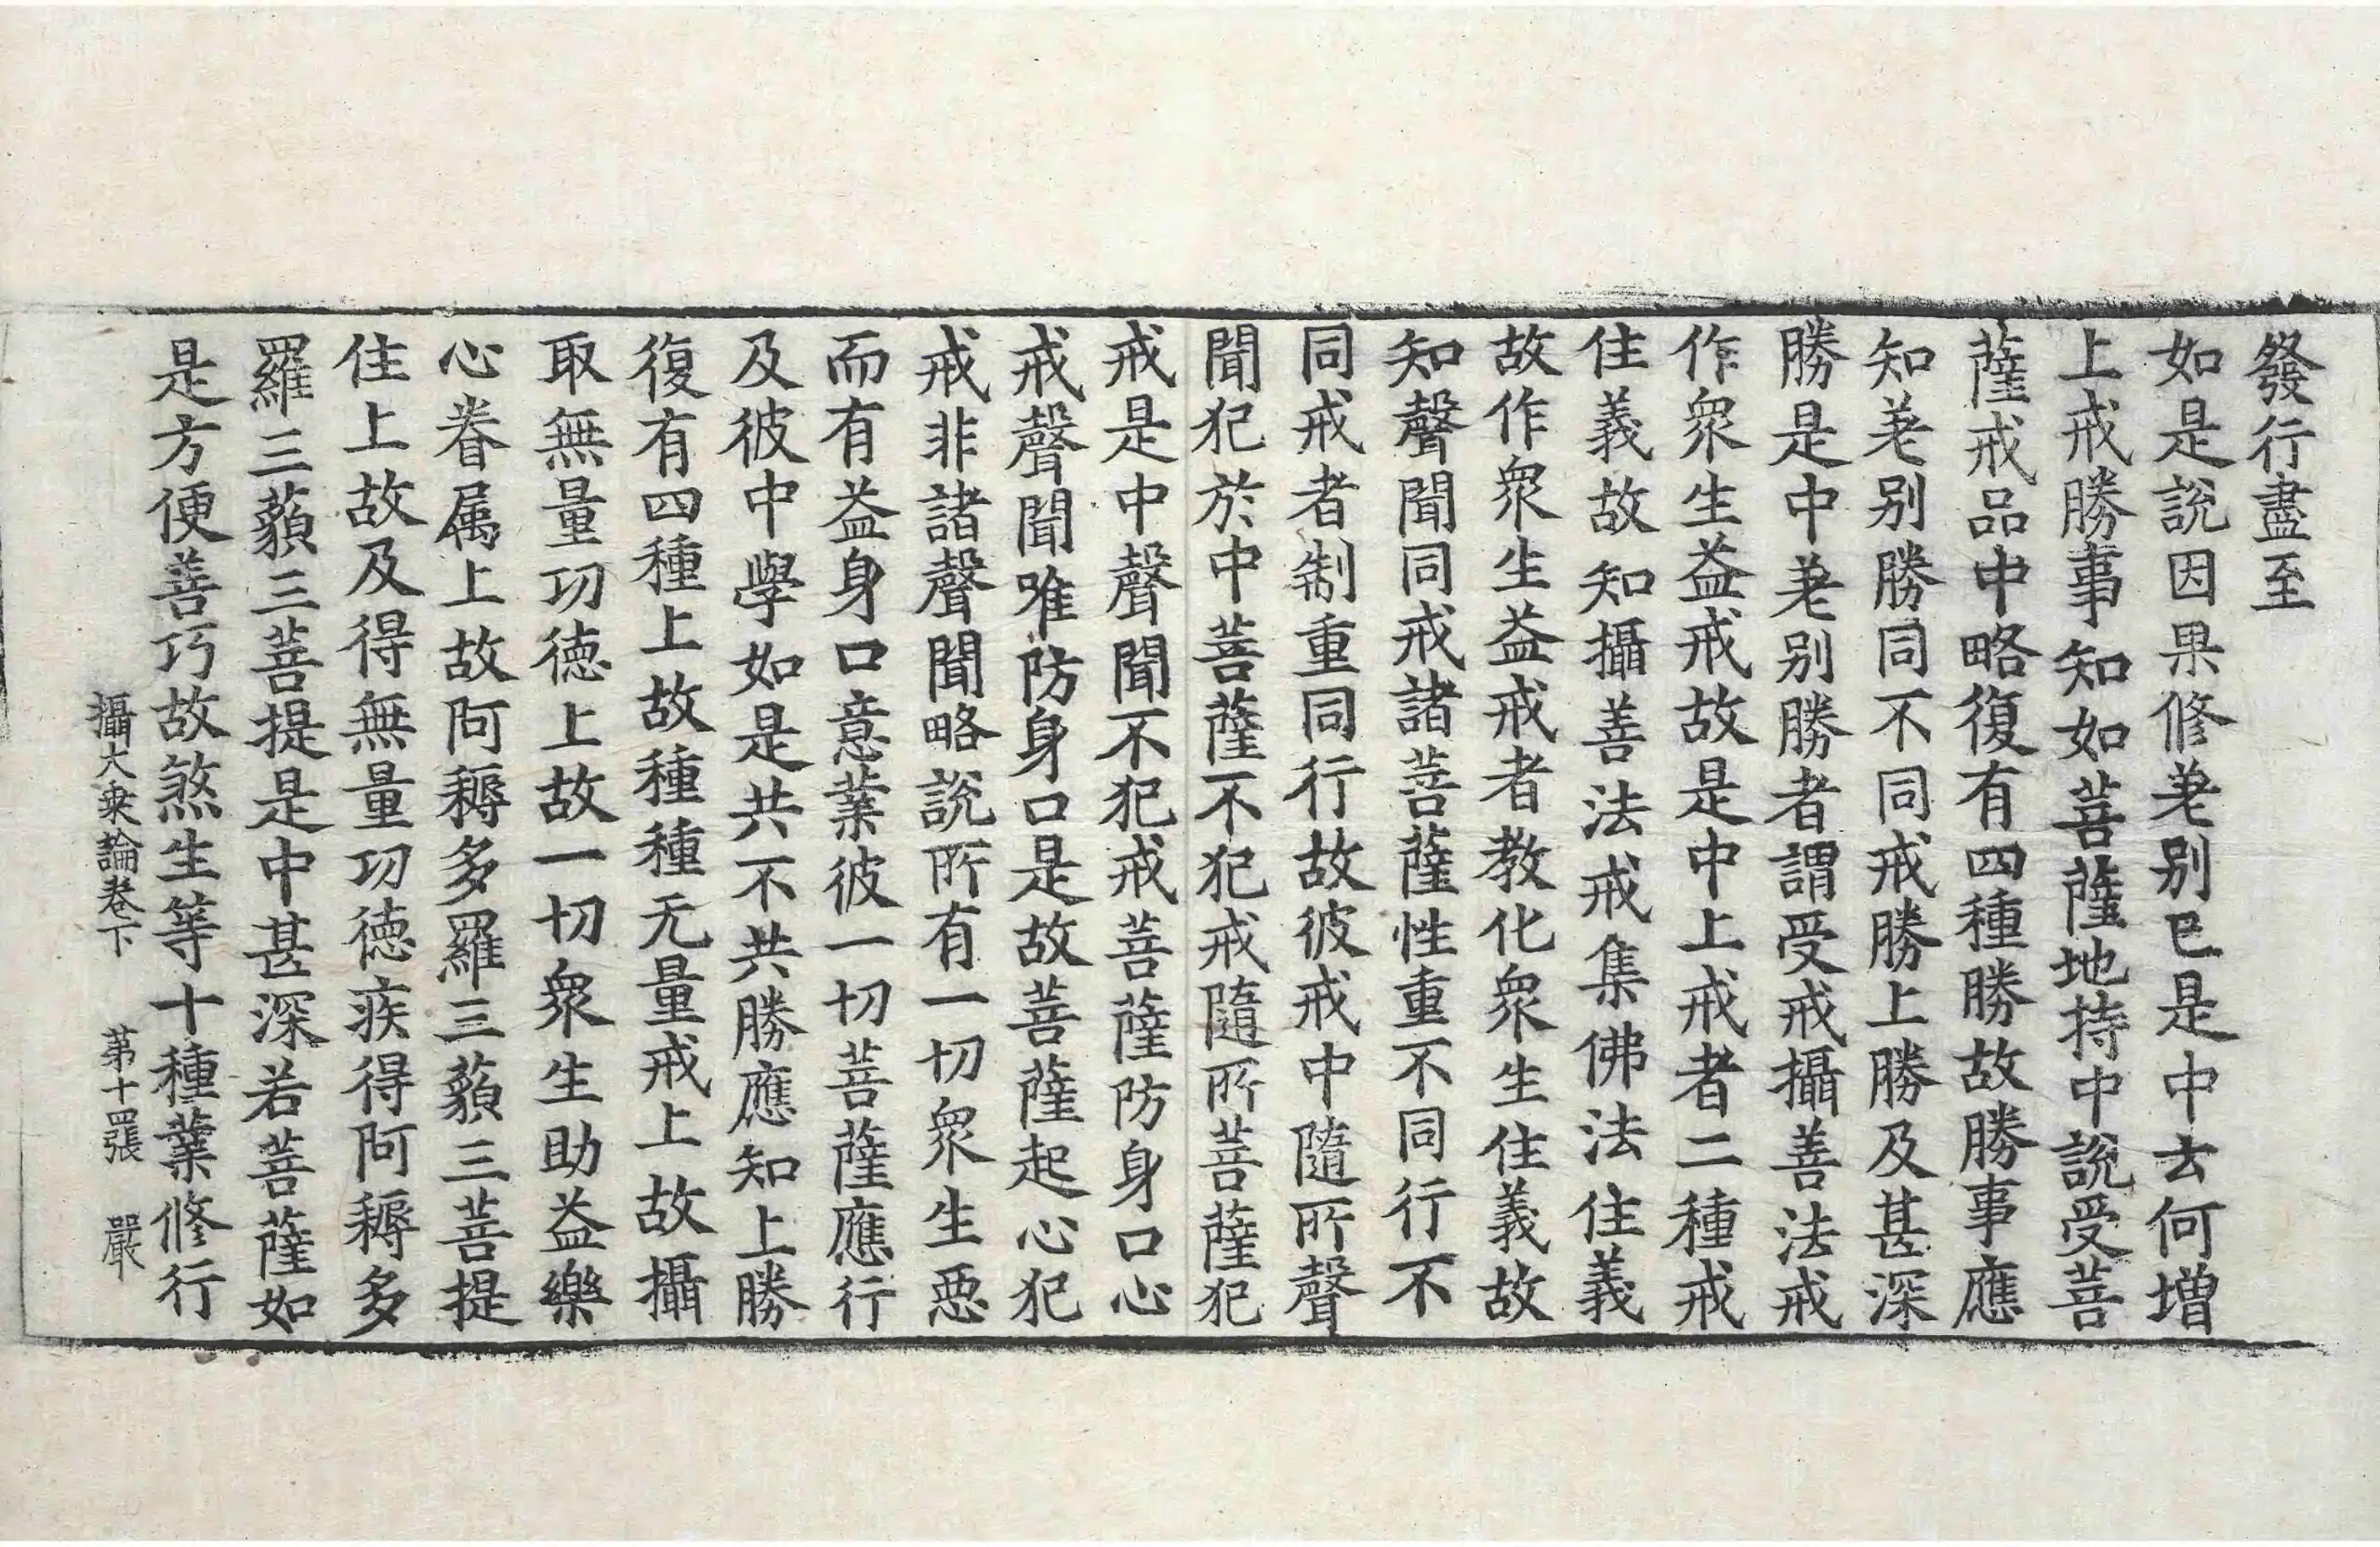 發行盡至
如是說因果修差别已是中云何增
上戒勝事知如菩薩地持中說受菩
薩戒品中略復有四種勝故勝事應
知差别勝同不同戒勝上勝及甚深
勝是中差别勝者謂受戒攝善法戒
作衆生益戒故是中上戒者二種戒
住義故知攝善法戒集佛法住義
故作衆生益戒者教化衆生住義故
知聲聞同戒諸菩薩性重不同行不
同戒者制重同行故彼戒中隨所聲
聞犯於中菩薩不犯戒隨所菩薩犯
戒是中聲聞不犯戒菩薩防身口心
戒聲聞唯防身口是故菩薩起心犯
戒非諸聲聞略說所有一切衆生惡
而有益身口意業彼一切菩薩應行
及彼中學如是共不共勝應知上勝
復有四種上故種種无量戒上故攝
取無量功德上故一切衆生助益樂
心眷属上故阿耨多羅三藐三菩提
住上故及得無量功德疾得阿耨多
羅三藐三菩提是中甚深若菩薩如
是方便善巧故煞生等十種業修行
攝大乘論卷下 第十四張 嚴